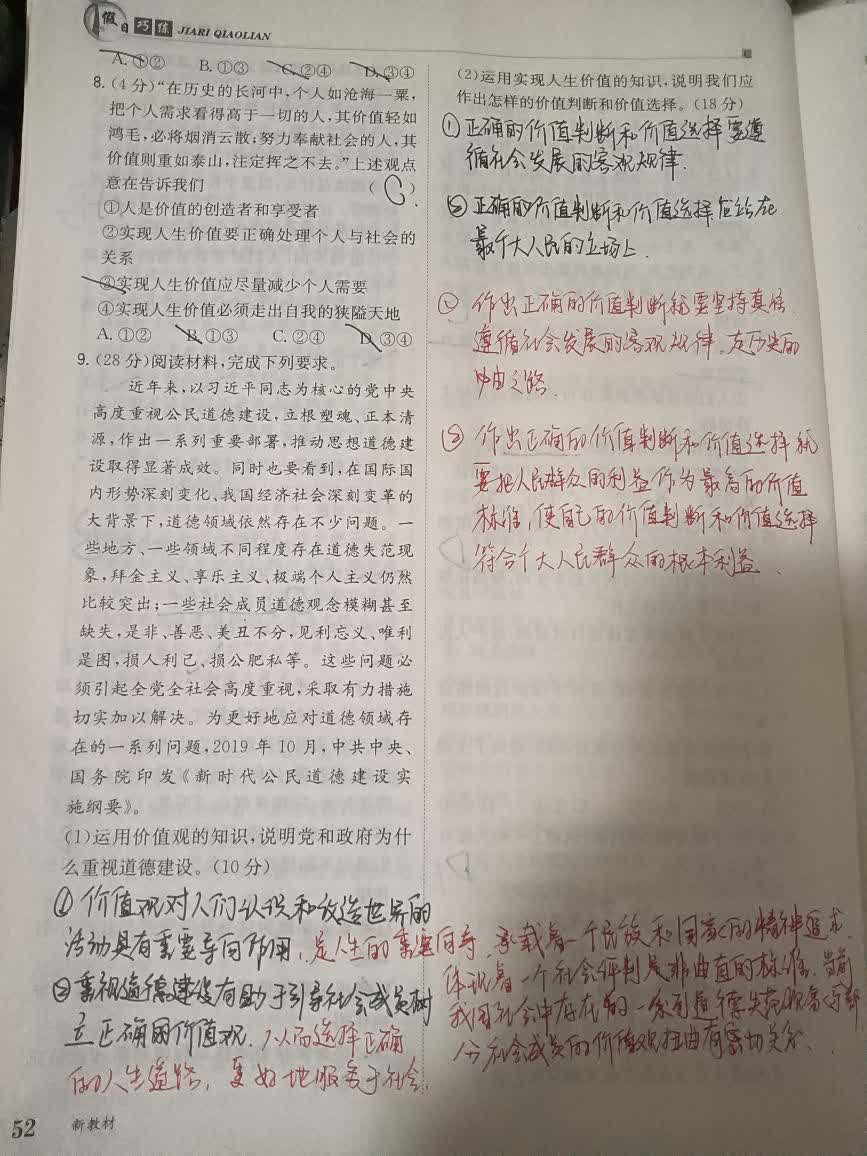 假日巧练 JIARI QIAOLIAN
A. ①② B. ①③ C. ②④ D. ③④
8. (4分)“在历史的长河中,个人如沧海一粟,
把个人需求看得高于一切的人,其价值轻如
鸿毛,必将烟消云散;努力奉献社会的人,其
价值则重如泰山,注定挥之不去。”上述观点
意在告诉我们 ( C )
①人是价值的创造者和享受者
②实现人生价值要正确处理个人与社会的
关系
③实现人生价值应尽量减少个人需要
④实现人生价值必须走出自我的狭隘天地
A. ①② B. ①③ C. ②④ D. ③④
9. (28分)阅读材料,完成下列要求。
近年来,以习近平同志为核心的党中央
高度重视公民道德建设,立根塑魂、正本清
源,作出一系列重要部署,推动思想道德建
设取得显著成效。同时也要看到,在国际国
内形势深刻变化、我国经济社会深刻变革的
大背景下,道德领域依然存在不少问题。一
些地方、一些领域不同程度存在道德失范现
象,拜金主义、享乐主义、极端个人主义仍然
比较突出;一些社会成员道德观念模糊甚至
缺失,是非、善恶、美丑不分,见利忘义、唯利
是图,损人利己、损公肥私等。这些问题必
须引起全党全社会高度重视,采取有力措施
切实加以解决。为更好地应对道德领域存
在的一系列问题,2019年10月,中共中央、
国务院印发《新时代公民道德建设实
施纲要》。
(1)运用价值观的知识,说明党和政府为什
么重视道德建设。(10分)
① 价值观对人们认识和改造世界的
活动具有重要导向作用,是人生的重要向导,承载着一个民族和国家的精神追求
体现着一个社会评判是非曲直的标准。当前
②重视道德建设有助于引导社会成员树
我国社会中存在的一系列道德失范现象与部
立正确的价值观.从而选择正确
分社会成员的价值观扭曲有密切关系.
的人生道路,更好地服务于社会.
(2)运用实现人生价值的知识,说明我们应
作出怎样的价值判断和价值选择。(18分)
①正确的价值判断和价值选择要遵
循社会发展的客观规律.
②正确的价值判断和价值选择应站在
最广大人民的立场上.
① 作出正确的价值判断就要坚持真信
遵循社会发展的客观规律,走历史的
必由之路.
② 作出正确的价值判断和价值选择就
要把人民群众的利益作为最高的价值
标准,使自己的价值判断和价值选择
符合广大人民群众的根本利益.
52 新教材